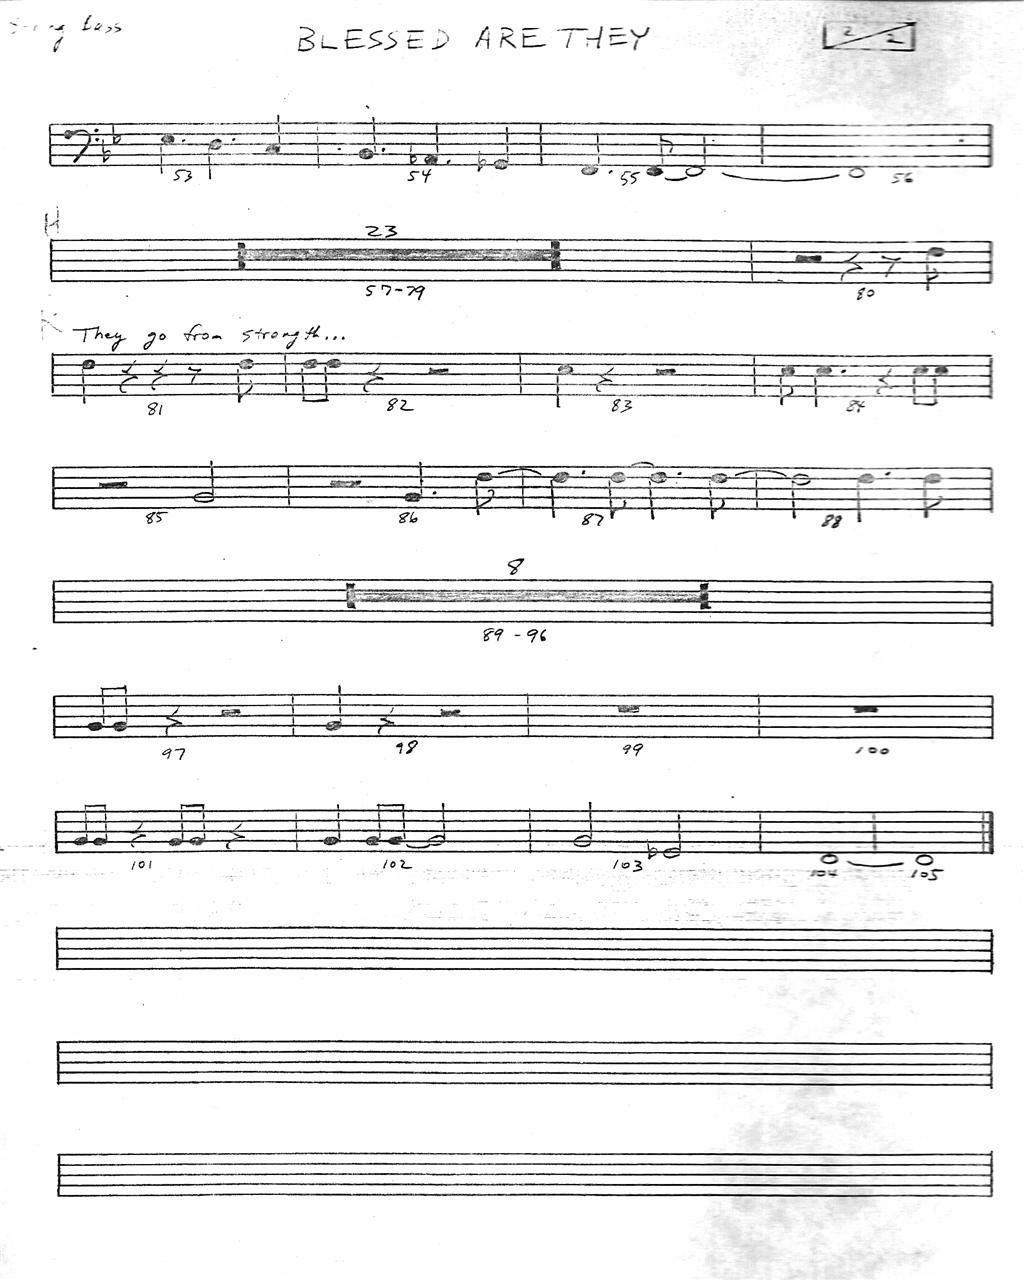 String bass
BLESSED ARE THEY
2/2
53 54 55 56
H
23
57-79 80
K
They go from strength...
81 82 83 84
85 86 87 88
8
89 - 96
97 98 99 100
101 102 103 104 105